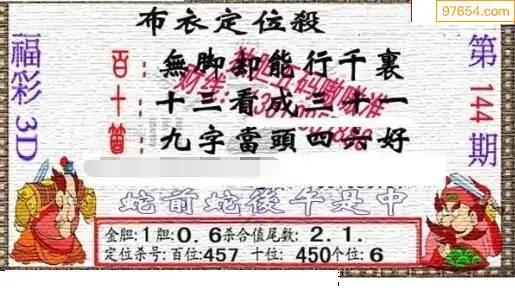 97654.com
布衣定位殺
福彩3D
第144期
百：無脚却能行千裏
十：十三看成三十一
個：九字當頭四六好
蛇前蛇後午是中
金胆:1胆:0.6杀合值尾数: 2.1.
定位杀号:百位:457 十位: 450个位:6